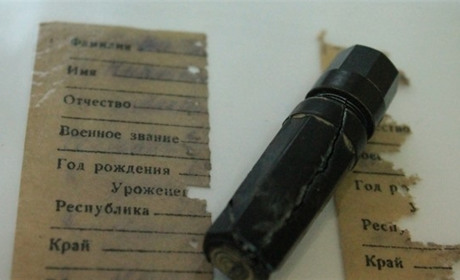 Фамилия
Имя
Отчество
Военное звание
Год рождения
Уроженец
Республика
Край
Год р
Респу
Край